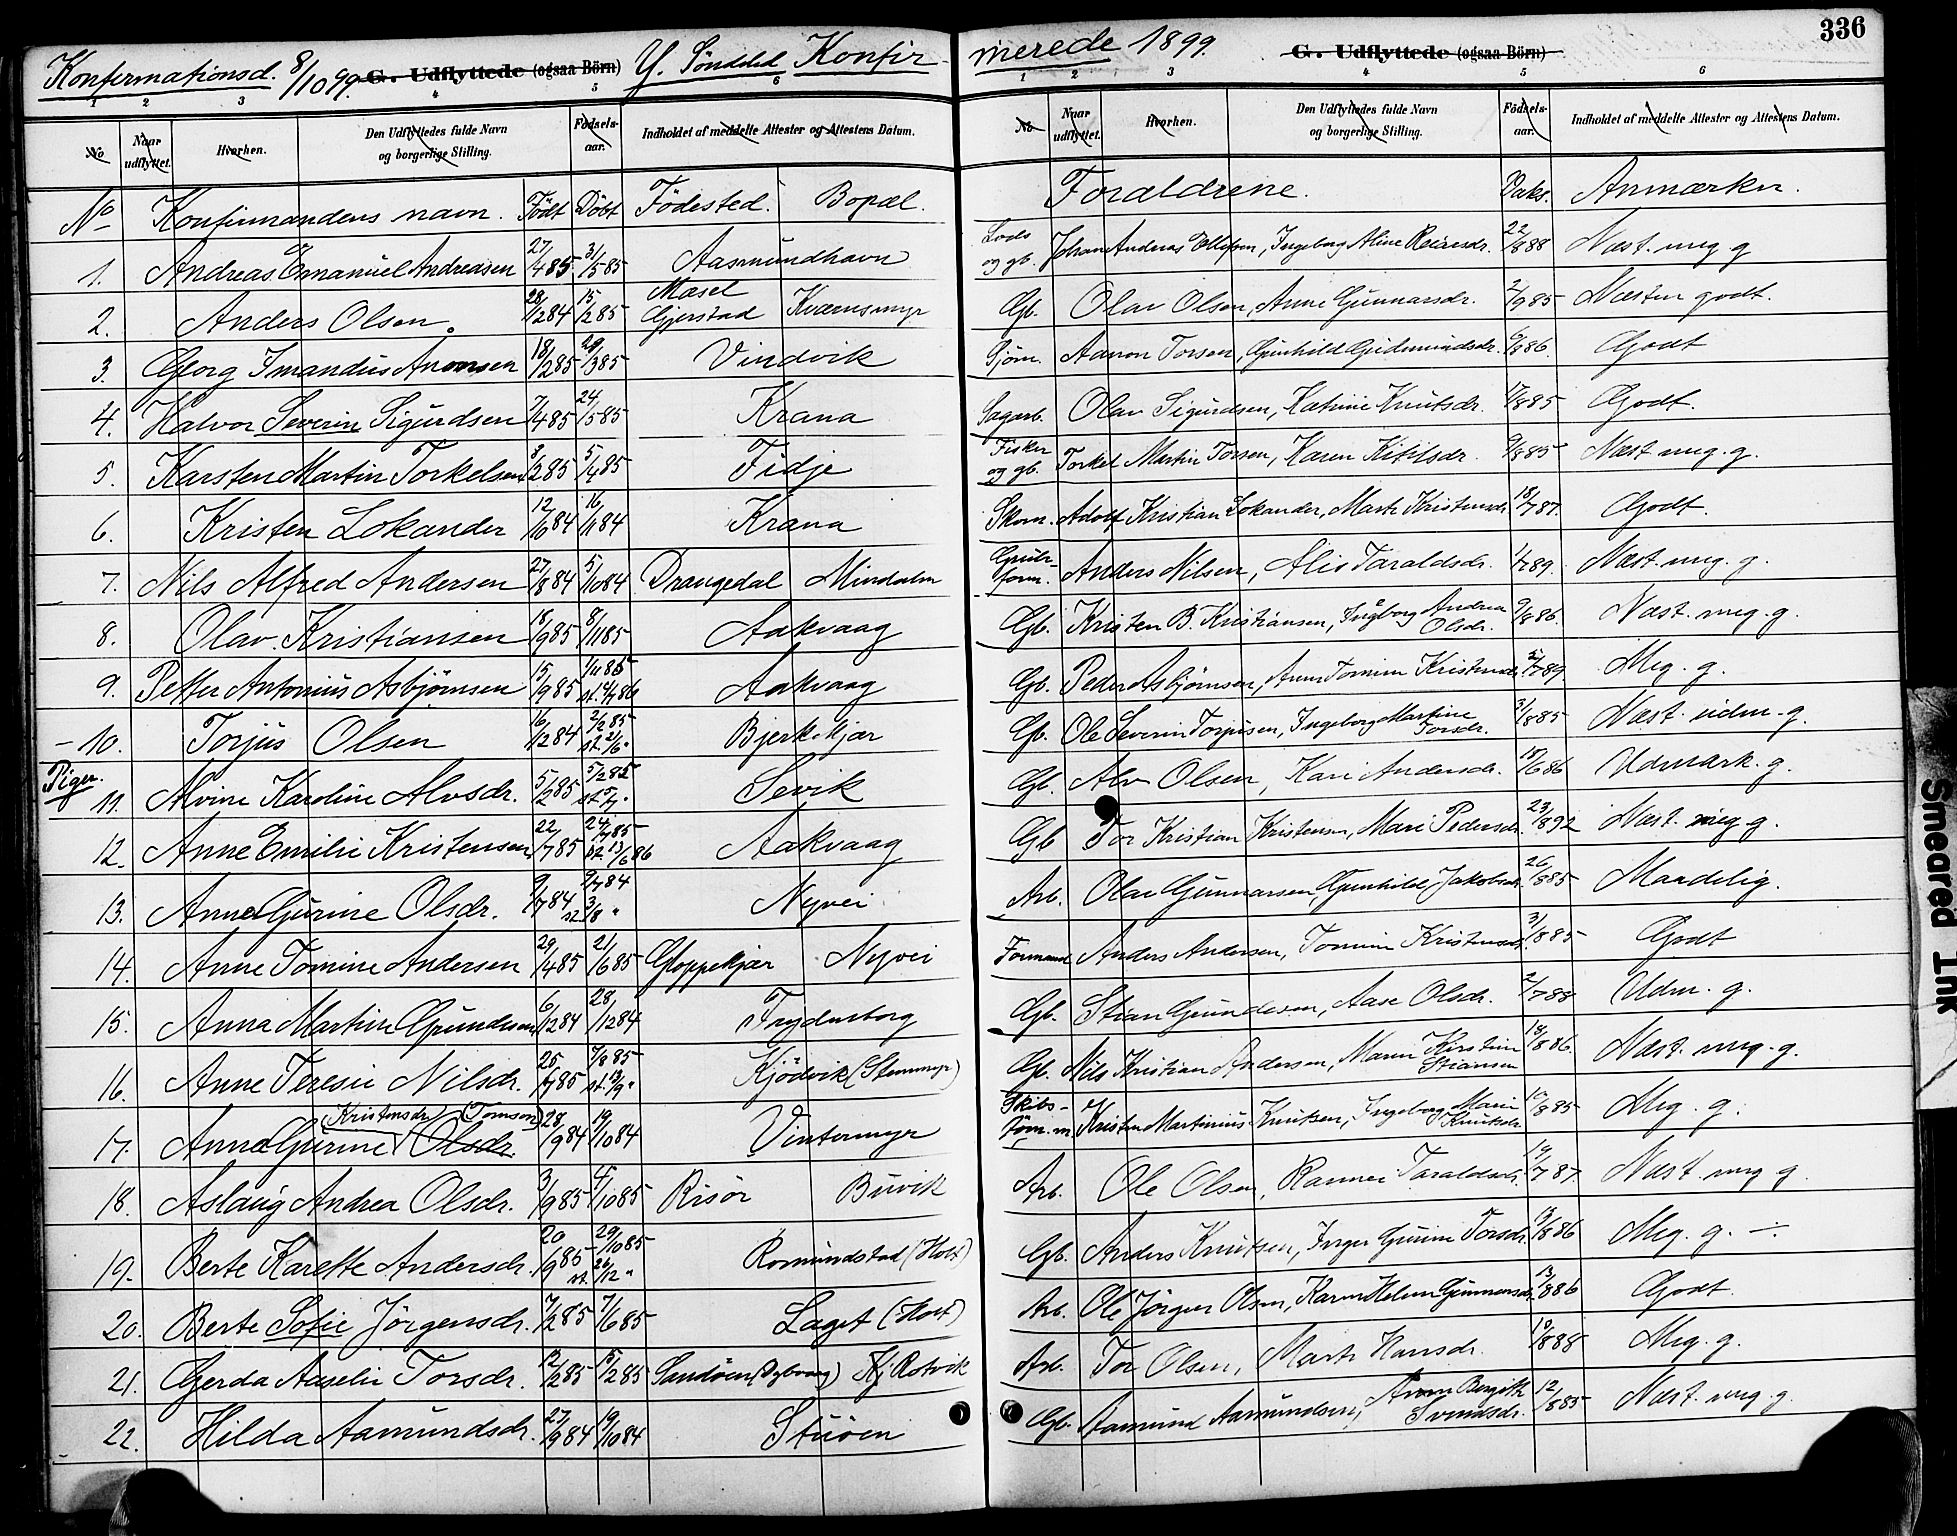 336
Konfirmationsd. 8/10 99. G. Udflyttede (ogsaa Börn) Y. Söndeled Konfir-
merede 1899. G. Udflyttede (ogsaa Börn)
1 2 3 4 5 6
1 2 3 4 5 6
No Naar udflyttet. Hvorhen. Den Udflyttedes fulde Navn og borgerlige Stilling. Födsels-aar. Indholdet af meddelte Attester og Attestens Datum.
No Naar udflyttet. Hvorhen. Den Udflyttedes fulde Navn og borgerlige Stilling. Födsels-aar. Indholdet af meddelte Attester og Attestens Datum.
No Konfirmandens navn. Födt Döbt Födested. Bopæl. Foraldrene. Vaks. Anmærkn.
1. Andreas Emanuel Andreasen 27/4 85 31/5 85 Aasmundhavn Lods og gb. Johan Andreas Ellefsen, Ingeborg Aline Reiersdr. 22/8 88 Næst. meg g
2. Anders Olsen. 28/2 84 15/2 85 Mæsel Gjerstad Kværnsmyr Gb. Olav Olsen, Anne Gunnarsdr. 2/9 85 Næsten godt.
3. Georg Imandus Aronsen 18/2 85 29/3 85 Vindvik Sjöm. Aanon Torsen, Gunhild Gudmundsdr. 6/8 86. Godt
4. Halvor Severin Sigurdsen 7/4 85 24/5 85 Krana Sagarb. Olav Sigurdsen, Katrine Knutsdr. 17/8 85 Godt.
5. Karsten Martin Torkelsen 8/2 85 5/4 85 Fidje Fisker og gb. Torkel Martin Torsen, Karen Kitilsdr. 9/8 85 Næst meg. g.
6. Kristen Lokander 12/10 84 16/11 84 Krana Skom. Adolf Kristian Lokander, Marte Kristensdr. 18/7 87. Godt.
7. Nils Alfred Andersen 27/8 84 5/10 84 Drangedal Mindalen Grube-form. Anders Nilsen, Alis Taraldsdr. 1/7 89. Næst. meg. g.
8. Olav Kristiansen 18/9 85 8/11 85 Aakvaag Gb. Kristen B. Kristiansen, Ingborg Andrea Olsdr. 9/8 86. Næst. meg. g.
9. Petter Antonius Asbjörnsen 15/9 85 1/11 85 st. 4/7 86 Aakvaag Gb. Peder Asbjörnsen, Anne Tomine Kristensdr. 2/7 89 Meg. g.
10. Torjus Olsen 16/12 84 2/2 85 st. 2/6 " Bjerkekjær Gb. Ole Severin Torjusen, Ingeborg Martine Torsdr. 31/8 85 Næst. udm. g.
Piger.
11. Alvine Karoline Alvsdr. 5/2 85 5/2 85 st. 5/7 " Sevik Gb. Alv Olsen, Kari Andersdr. 17/6 86 Udmærk. g.
12. Anne Emilie Kristensen 22/7 85 24/7 85 st. 13/6 86 Aakvaag Gb Tor Kristian Kristensen, Mari Pedersdr. 23/8 92 Næst. meg g.
13. Anne Gurine Olsdr. 9/7 84 9/7 84 st 3/8 " Nyvei Arb. Olav Gunnarsen, Gunhild Jakobsdr. 26/8 85 Maadelig.
14. Anne Tomine Andersen 29/4 85 21/6 85 Gloppekjær Nyvei Formand Anders Andersen, Tomine Kristensdr. 3/8 85 Godt
15. Anna Martine Grundesen 6/12 84 28/12 84 Frydensborg Gb. Stian Grundesen, Aase Olsdr. 2/7 88 Udm. g.
16. Anne Teresie Nilsdr. 25/7 85 7/8 85 st. 13/9 " Kjödvik (Stemmyr) Gb. Nils Kristian Andersen, Maren Kirstine Stiansen 18/8 86. Næst. meg. g.
17. Anne Gurine (Kristensdr) (Tomsen) Olsdr. 28/9 84 19/10 84 Vintermyr Skibs-töm.m. Kristen Martinius Knutsen, Ingeborg Marie Knutsdr. 10/8 85 Meg. g.
18. Aslaug Andrea Olsdr. 3/9 85 4/10 85 Risör Buvik Arb. Ole Olsen, Rannei Taraldsdr. 19/7 87. Næst. meg g.
19. Berte Karette Andersdr. 20/9 85 29/10 85 st. 26/12 " Romundstad (Holt) Gb. Anders Knutsen, Inger Gurine Torsdr. 13/8 86 Meg. g. -
20. Berte Sofie Jörgensdr. 7/2 85 7/6 85 Laget (Holt) Arb. Ole Jörgen Olsen, Karen Helene Gunnarsdr. 13/8 86 Godt.
21. Gerda Aaselie Torsdr. 12/2 85 15/2 85 Sandöen (Dybvaag) Kj. Rotvik Arb. Tor Olsen, Marte Hansdr. 10/8 88 Meg. g.
22. Hilda Aamundsdr. 27/9 84 19/10 84 Stuöen Gb. Aamund Aamundsen, Anne Bergith Svendsdr. 12/8 85 Næst. meg. g.
Smeared Ink